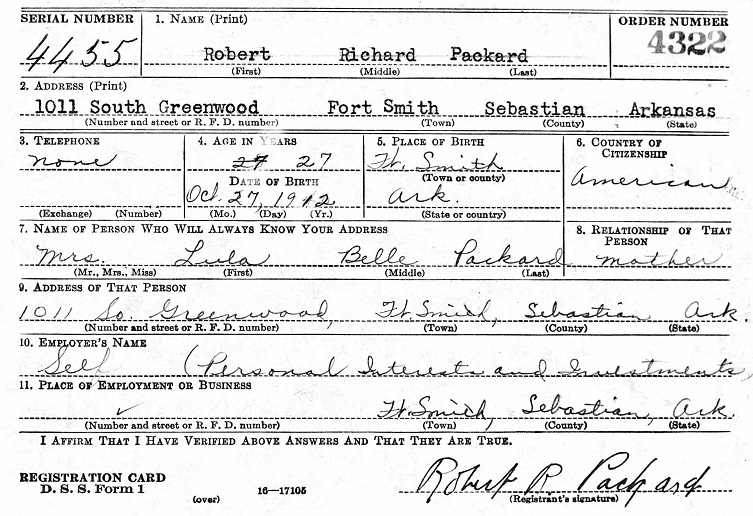 SERIAL NUMBER 1. NAME (Print) ORDER NUMBER
4455 Robert Richard Packard 4322
(First) (Middle) (Last)
2. ADDRESS (Print)
1011 South Greenwood Fort Smith Sebastian Arkansas
(Number and street or R. F. D. number) (Town) (County) (State)
3. TELEPHONE 4. AGE IN YEARS 5. PLACE OF BIRTH 6. COUNTRY OF CITIZENSHIP
none 27 27 Ft. Smith
DATE OF BIRTH (Town or county) American
Oct. 27, 1912 Ark.
(Exchange) (Number) (Mo.) (Day) (Yr.) (State or country)
7. NAME OF PERSON WHO WILL ALWAYS KNOW YOUR ADDRESS 8. RELATIONSHIP OF THAT PERSON
Mrs. Lula Belle Packard mother
(Mr., Mrs., Miss) (First) (Middle) (Last)
9. ADDRESS OF THAT PERSON
1011 So. Greenwood, Ft. Smith, Sebastian Ark.
(Number and street or R. F. D. number) (Town) (County) (State)
10. EMPLOYER'S NAME
Self (Personal Interests and Investments,
11. PLACE OF EMPLOYMENT OR BUSINESS
✓ Ft. Smith, Sebastian, Ark.
(Number and street or R. F. D. number) (Town) (County) (State)
I AFFIRM THAT I HAVE VERIFIED ABOVE ANSWERS AND THAT THEY ARE TRUE.
REGISTRATION CARD
D. S. S. Form 1 (over) 16—17105
Robert R Packard
(Registrant's signature)